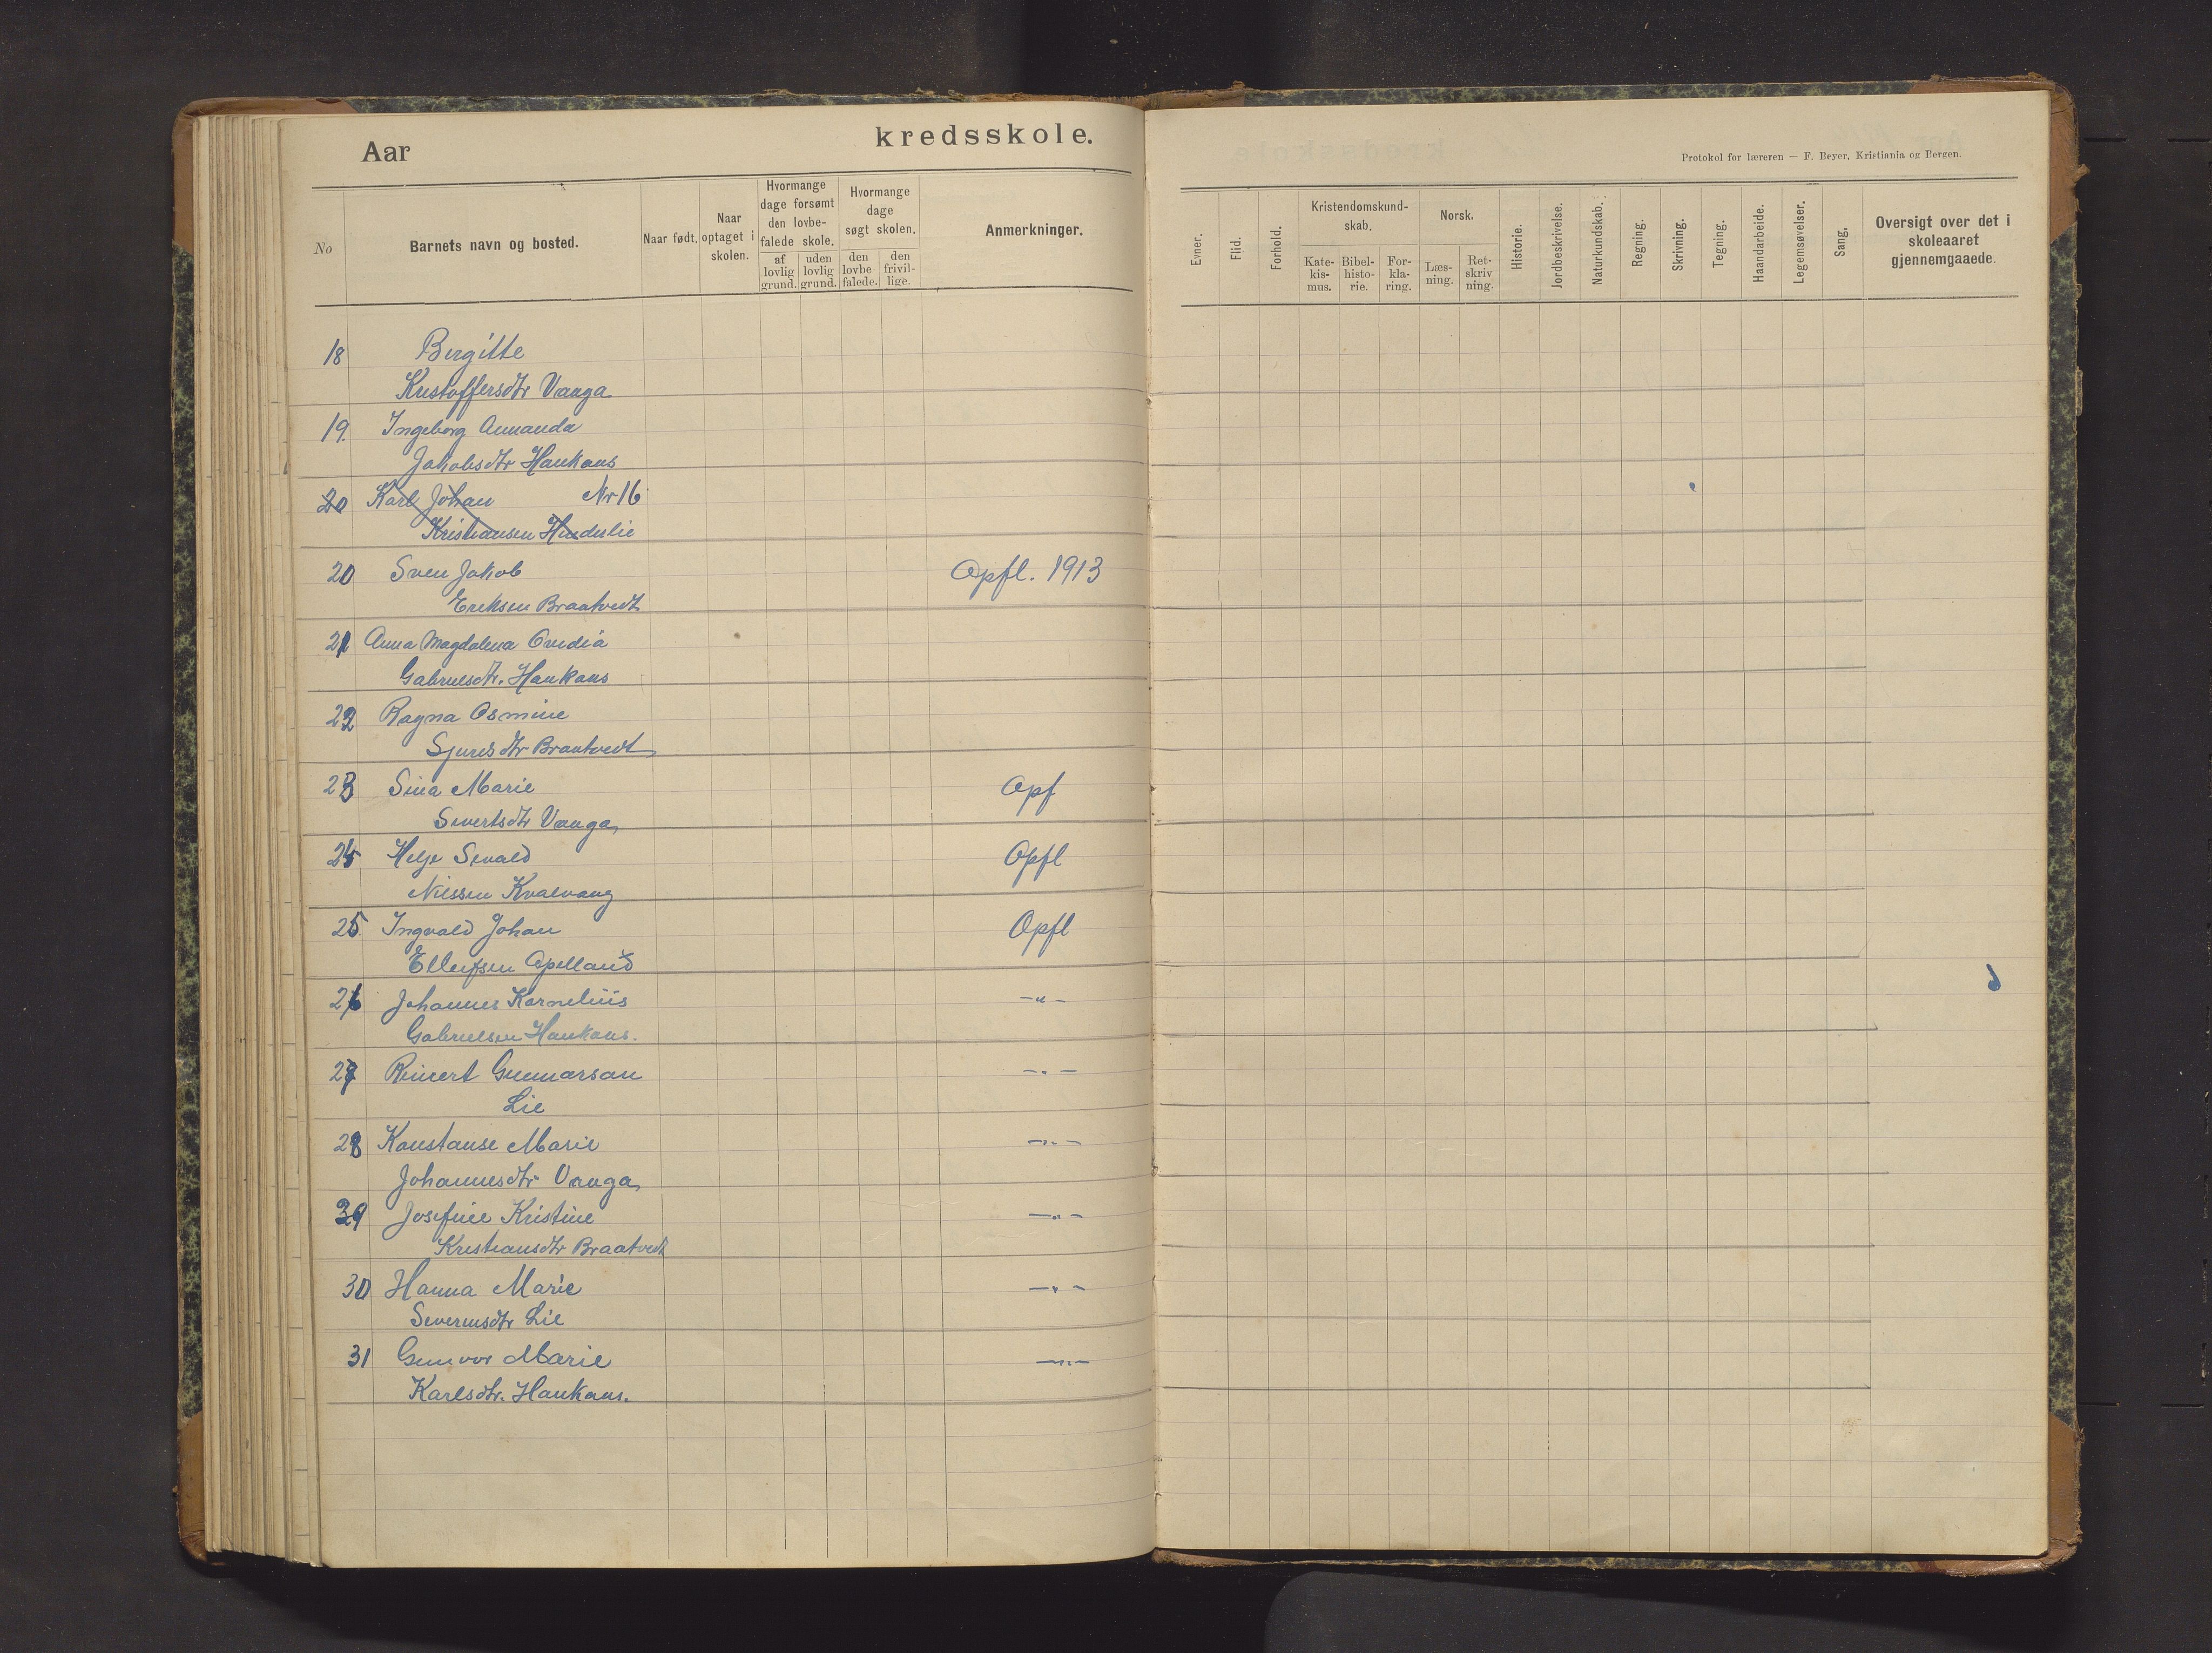 Aar
kredsskole.
No
Barnets navn og bosted.
Naar født.
Naar optaget i skolen.
Hvormange dage forsømt den lovbe-falede skole.
af lovlig grund.
uden lovlig grund.
Hvormange dage søgt skolen.
den lovbe falede.
den frivil-lige.
Anmerkninger.
18 Birgitte
Kristoffersdtr Vanga
19. Ingeborg Amanda
Jakobsdtr Haukaas
20 Karl Johan Nr 16
Kristiansen Hinderlie
20 Sven Jakob Opfl. 1913
Eriksen Braatvedt
21 Anna Magdalena Ovidia
Gabrielsdtr. Haukaas
22 Ragna Osmine
Sjursdtr Braatvedt
23 Sina Marie Opf
Sivertsdtr Vanga
24 Helje Sevald Opfl
Nilssen Kvalvaag
25 Ingvald Johan Opfl
Ellefsen Apelland
26 Johannes Kornelius -"-
Gabrielsen Haukaas.
27 Reinert Gunnarsan -"-
Lie
28 Konstanse Marie -"-
Johannesdtr Vanga
29 Josefine Kristine -"-
Kristiansdtr Braatvedt
30 Hanna Marie -"-
Severinsdtr Lie
31 Gunvor Marie -"-
Karlsdtr. Haukaas.
Protokol for læreren — F. Beyer, Kristiania og Bergen.
Evner.
Flid.
Forhold.
Kristendomskund-skab.
Kate-kis-mus.
Bibel-histo-rie.
For-kla-ring.
Norsk.
Læs-ning.
Ret-skriv ning.
Historie.
Jordbeskrivelse.
Naturkundskab.
Regning.
Skrivning.
Tegning.
Haandarbeide.
Legemsøvelser.
Sang.
Oversigt over det i skoleaaret gjennemgaaede.